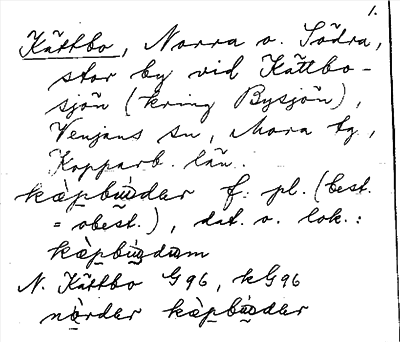 1.
Kättbo, Norra o. Södra,
stor by vid Kättbo-
sjön (kring Bysjön),
Venjans sn, Mora tg,
Kopparb. län.
f. pl. (best.
= obest.), dat. o. lok.:
N. Kättbo G96, kG96